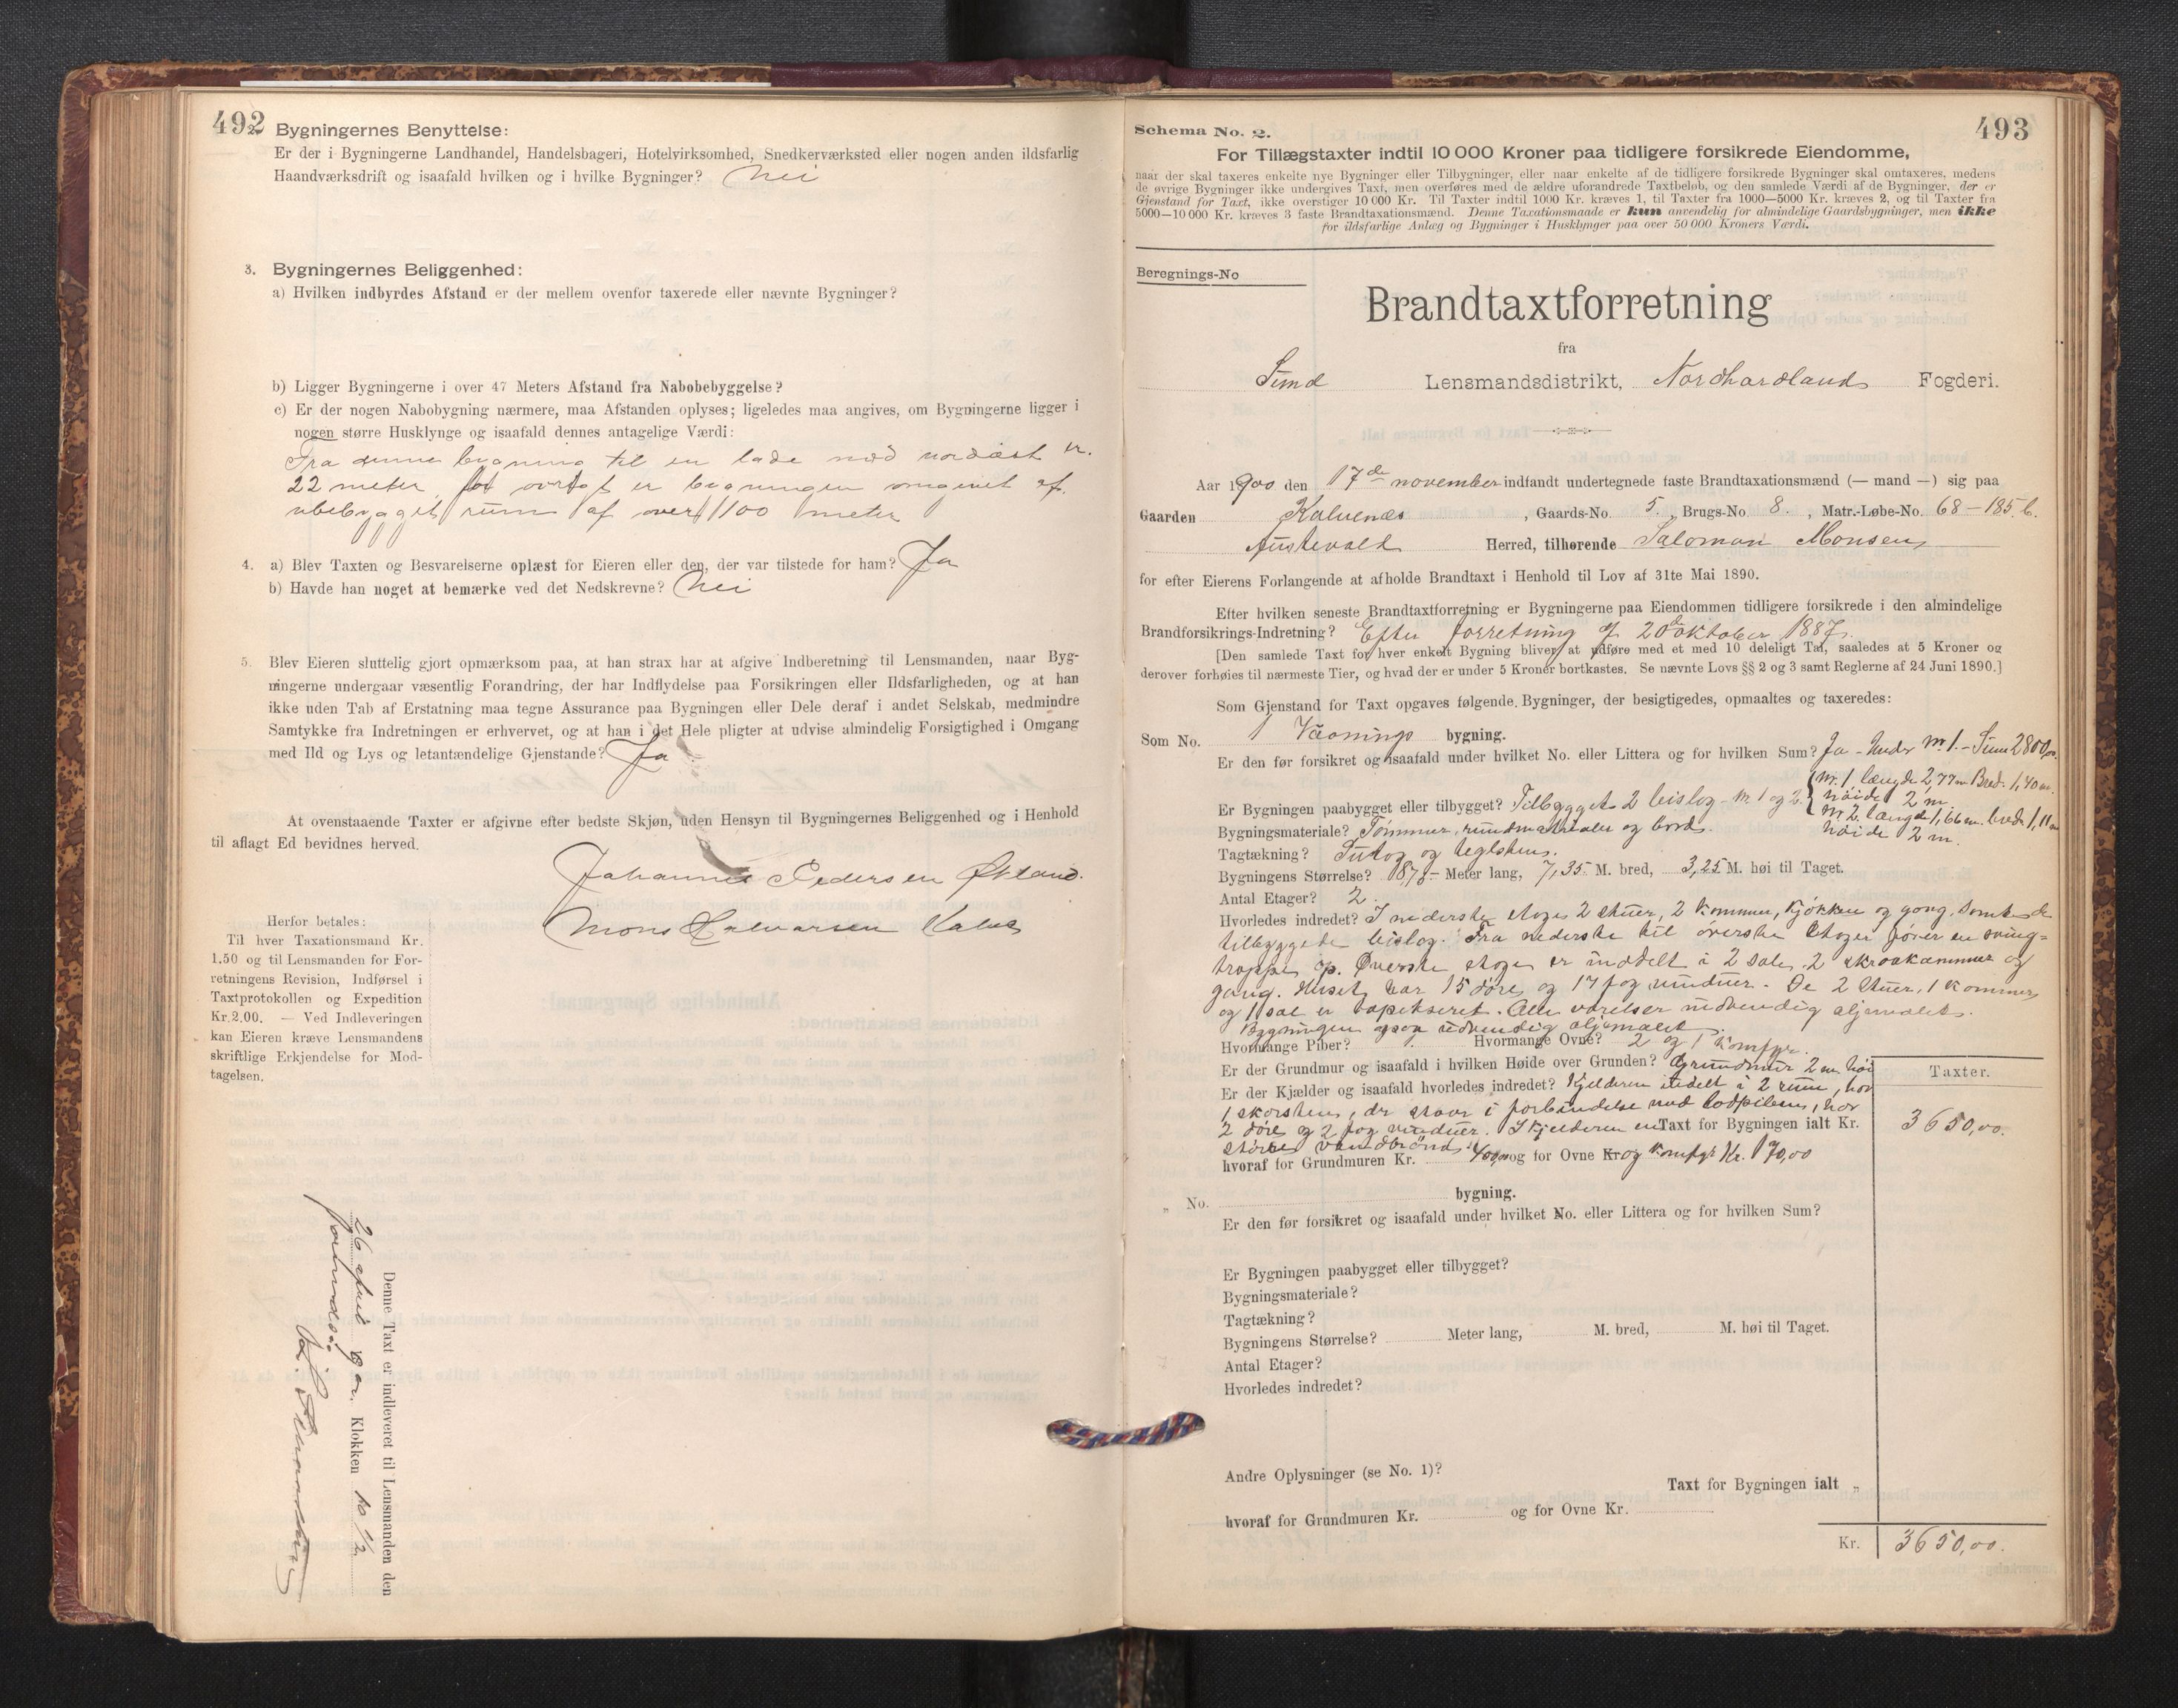 492
2. Bygningernes Benyttelse:
Er der i Bygningerne Landhandel, Handelsbageri, Hotelvirksomhed, Snedkerværksted eller nogen anden ildsfarlig
Haandværksdrift og isaafald hvilken og i hvilke Bygninger? Nei
3. Bygningernes Beliggenhed:
a) Hvilken indbyrdes Afstand er der mellem ovenfor taxerede eller nævnte Bygninger?
b) Ligger Bygningerne i over 47 Meters Afstand fra Nabobebyggelse?
c) Er der nogen Nabobygning nærmere, maa Afstanden oplyses; ligeledes maa angives, om Bygningerne ligger i
nogen større Husklynge og isaafald dennes antagelige Værdi:
Fra denne bygning til en lade mod nordøst er
22 meter, for øvrigt er bygningen omgivet af
ubebygget rum af over 100 meter
4. a) Blev Taxten og Besvarelserne oplæst for Eieren eller den, der var tilstede for ham? Ja
b) Havde han noget at bemærke ved det Nedskrevne? Nei
5. Blev Eieren sluttelig gjort opmærksom paa, at han strax har at afgive Indberetning til Lensmanden, naar Byg-
ningerne undergaar væsentlig Forandring, der har Indflydelse paa Forsikringen eller Ildsfarligheden, og at han
ikke uden Tab af Erstatning maa tegne Assurance paa Bygningen eller Dele deraf i andet Selskab, medmindre
Samtykke fra Indretningen er erhvervet, og at han i det Hele pligter at udvise almindelig Forsigtighed i Omgang
med Ild og Lys og letantændelige Gjenstande? Ja
At ovenstaaende Taxter er afgivne efter bedste Skjøn, uden Hensyn til Bygningernes Beliggenhed og i Henhold
til aflagt Ed bevidnes herved.
Johannes Pedersen Østand.
Mons Halvorsen Kalve
Herfor betales:
Til hver Taxationsmand Kr.
1.50 og til Lensmanden for For-
retningens Revision, Indførsel i
Taxtprotokollen og Expedition
Kr. 2.00. — Ved Indleveringen
kan Eieren kræve Lensmandens
skriftlige Erkjendelse for Mod-
tagelsen.
Denne Taxt er indleveret til Lensmanden den
26 april 1901. Klokken 10 1/2
formds.
493
Schema No. 2.
For Tillægstaxter indtil 10 000 Kroner paa tidligere forsikrede Eiendomme,
naar der skal taxeres enkelte nye Bygninger eller Tilbygninger, eller naar enkelte af de tidligere forsikrede Bygninger skal omtaxeres, medens
de øvrige Bygninger ikke undergives Taxt, men overføres med de ældre uforandrede Taxtbeløb, og den samlede Værdi af de Bygninger, der er
Gjenstand for Taxt, ikke overstiger 10 000 Kr. Til Taxter indtil 1000 Kr. kræves 1, til Taxter fra 1000—5000 Kr. kræves 2, og til Taxter fra
5000—10 000 Kr. kræves 3 faste Brandtaxationsmænd. Denne Taxationsmaade er kun anvendelig for almindelige Gaardsbygninger, men ikke
for ildsfarlige Anlæg og Bygninger i Husklynger paa over 50 000 Kroners Værdi.
Beregnings-No
Brandtaxtforretning
fra
Sund Lensmandsdistrikt, Nordhordlands Fogderi.
Aar 1900 den 17de november indfandt undertegnede faste Brandtaxationsmænd (— mand —) sig paa
Gaarden Kalvenes, Gaards-No. 5., Brugs-No. 8., Matr.-Løbe-No. 68 – 185 b.
Austevold Herred, tilhørende Salomon Monsen
for efter Eierens Forlangende at afholde Brandtaxt i Henhold til Lov af 31te Mai 1890.
Efter hvilken seneste Brandtaxtforretning er Bygningerne paa Eiendommen tidligere forsikrede i den almindelige
Brandforsikrings-Indretning? Efter forretning af 20de oktober 1887.
[Den samlede Taxt for hver enkelt Bygning bliver at udføre med et med 10 deleligt Tal, saaledes at 5 Kroner og
derover forhøies til nærmeste Tier, og hvad der er under 5 Kroner bortkastes. Se nævnte Lovs §§ 2 og 3 samt Reglerne af 24 Juni 1890.]
Som Gjenstand for Taxt opgaves følgende Bygninger, der besigtigedes, opmaaltes og taxeredes:
Som No. 1 Vaanings bygning.
Er den før forsikret og isaafald under hvilket No. eller Littera og for hvilken Sum? Ja – Under Nr. 1. – Sum 2800,00.
Er Bygningen paabygget eller tilbygget? Tilbygget 2 bislog – Nr 1 og 2. { Nr. 1 længde 2,77 m. Bred. 1,40 m.
høide 2 m.
Nr 2. længde 1,66 m. brede 1,11 m
høide 2 m.
Bygningsmateriale? Tømmer, rundmaterialer og bord.
Tagtækning? Sutag og teglsten.
Bygningens Størrelse? Meter lang, 7,35 M. bred, 3,25 M. høi til Taget.
Antal Etager? 2.
Hvorledes indredet? I nederste etage 2 stuer, 2 kammer, kjøkken og gang, samt de
tilbyggede bislog. Fra nederste til øverste etage fører en sving-
trappe op. Øverste etage er inddelt i 2 sale, 2 skraakammer og
gang. Huset har 15 døre og 17 fag vinduer. De 2 stuer, 1 kammer
og 1 sal er tapetseret. Alle værelser indvendig oljemalet.
Bygningen ogsaa udvendig oljemalet.
Hvormange Piber? Hvormange Ovne? 2 og 1 komfyr.
Er der Grundmur og isaafald i hvilken Høide over Grunden? Grundmur 2 m. høi
Er der Kjælder og isaafald hvorledes indredet? Kjelderen indelt i 2 rum, har
1 skorsten, der staar i forbindelse med lodpiben, har
2 døre og 2 fag vinduer. I kjelderen en Taxt for Bygningen ialt Kr.
større vandbrønd
hvoraf for Grundmuren Kr. 400,00 og for Ovne Kr. og komfyr Kr. 170,00
Taxter.
3650,00.
„ No. bygning.
Er den før forsikret og isaafald under hvilket No. eller Littera og for hvilken Sum?
Er Bygningen paabygget eller tilbygget?
Bygningsmateriale?
Tagtækning?
Bygningens Størrelse? Meter lang, M. bred, M. høi til Taget.
Antal Etager?
Hvorledes indredet?
Andre Oplysninger (se No. 1)?
Taxt for Bygningen ialt „
hvoraf for Grundmuren Kr. og for Ovne Kr.
Kr. 3650,00.